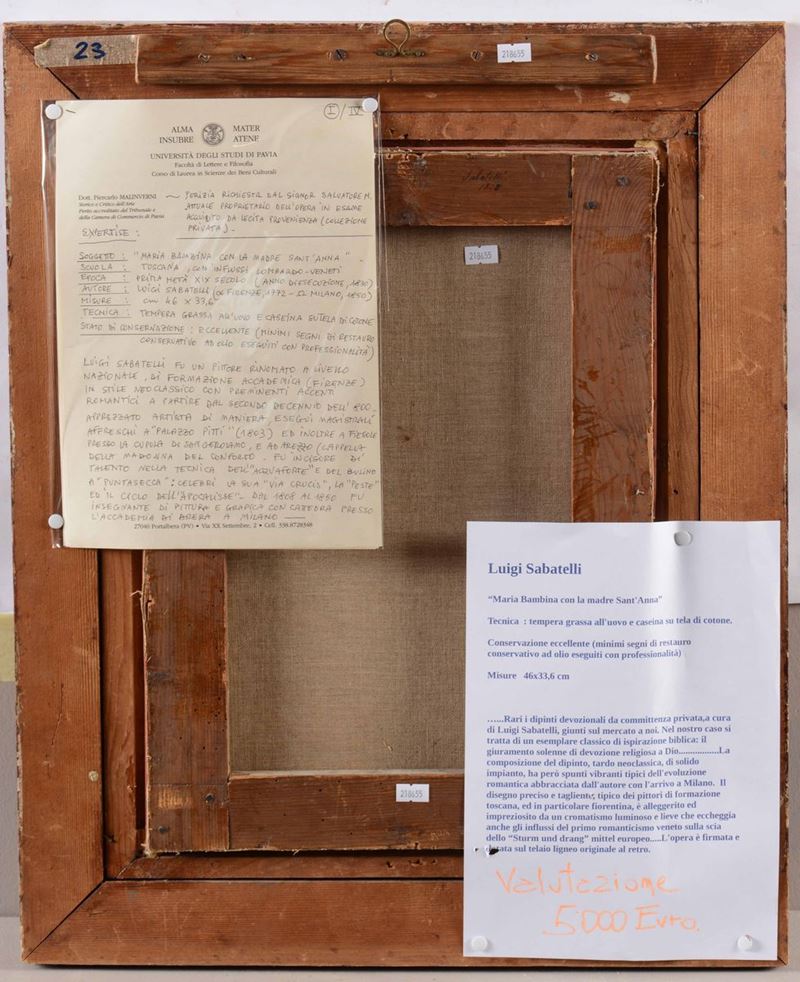 23
218655
I/IV
ALMA MATER
INSUBRE ATENE
UNIVERSITÀ DEGLI STUDI DI PAVIA
Facoltà di Lettere e Filosofia
Corso di Laurea in Scienze dei Beni Culturali
Dott. Piercarlo MALINVERNI
Storico e Critico dell'Arte
Perito accreditato del Tribunale e
della Camera di Commercio di Pavia
~ PERIZIA RICHIESTA DAL SIGNOR SALVATORE M.
ATTUALE PROPRIETARIO DELL'OPERA IN ESAME
ACQUISITO DA LECITA PROVENIENZA (COLLEZIONE
PRIVATA).
EXPERTISE:
SOGGETTO : "MARIA BAMBINA CON LA MADRE SANT'ANNA".
SCUOLA : TOSCANA, CON INFLUSSI LOMBARDO-VENETI
EPOCA : PRIMA METÀ XIX SECOLO (ANNO DI ESECUZIONE, 1830)
AUTORE : LUIGI SABATELLI (FIRENZE, 1772 - MILANO, 1850)
MISURE : cm 46 x 33,6
TECNICA : TEMPERA GRASSA ALL'UOVO E CASEINA SU TELA DI COTONE
STATO DI CONSERVAZIONE : ECCELLENTE (MINIMI SEGNI DI RESTAURO
CONSERVATIVO AD OLIO ESEGUITI CON PROFESSIONALITÀ)
LUIGI SABATELLI FU UN PITTORE RINOMATO A LIVELLO
NAZIONALE, DI FORMAZIONE ACCADEMICA (FIRENZE)
IN STILE NEOCLASSICO CON PREMINENTI ACCENTI
ROMANTICI A PARTIRE DAL SECONDO DECENNIO DELL'800.
APPREZZATO ARTISTA DI MANIERA ESEGUÌ MAGISTRALI
AFFRESCHI A "PALAZZO PITTI" (1803) ED INOLTRE A FIESOLE
PRESSO LA CUPOLA DI SAN GEROLAMO, E AD AREZZO (CAPPELLA
DELLA MADONNA DEL CONFORTO. FU INCISORE DI
TALENTO NELLA TECNICA DELL'"ACQUAFORTE" E DEL BULINO
A "PUNTASECCA": CELEBRI LA SUA "VIA CRUCIS", LA "PESTE"
ED IL CICLO DELL'"APOCALISSE". DAL 1808 AL 1850 FU
INSEGNANTE DI PITTURA E GRAFICA CON CATTEDRA PRESSO
L'ACCADEMIA DI BRERA A MILANO
27040 Portalbera (PV) • Via XX Settembre, 2 • Cell. 338.8729348
Sabatelli
218655
218655
Luigi Sabatelli
“Maria Bambina con la madre Sant'Anna”
Tecnica : tempera grassa all'uovo e caseina su tela di cotone.
Conservazione eccellente (minimi segni di restauro
conservativo ad olio eseguiti con professionalità)
Misure 46x33,6 cm
…...Rari i dipinti devozionali da committenza privata,a cura
di Luigi Sabatelli, giunti sul mercato a noi. Nel nostro caso si
tratta di un esemplare classico di ispirazione biblica: il
giuramento solenne di devozione religiosa a Dio..................La
composizione del dipinto, tardo neoclassica, di solido
impianto, ha però spunti vibranti tipici dell'evoluzione
romantica abbracciata dall'autore con l'arrivo a Milano. Il
disegno preciso e tagliente, tipico dei pittori di formazione
toscana, ed in particolare fiorentina, è alleggerito ed
impreziosito da un cromatismo luminoso e lieve che eccheggia
anche gli influssi del primo romanticismo veneto sulla scia
dello “Sturm und drang” mittel europeo.....L'opera è firmata e
datata sul telaio ligneo originale al retro.
Valutazione
5.000 Euro.